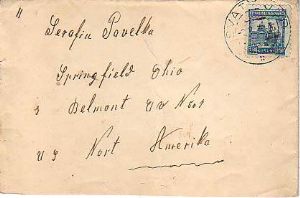 Serafin Povelka
Springfield Ohio
3 Belmont Av Nort
U S Nort Amerika